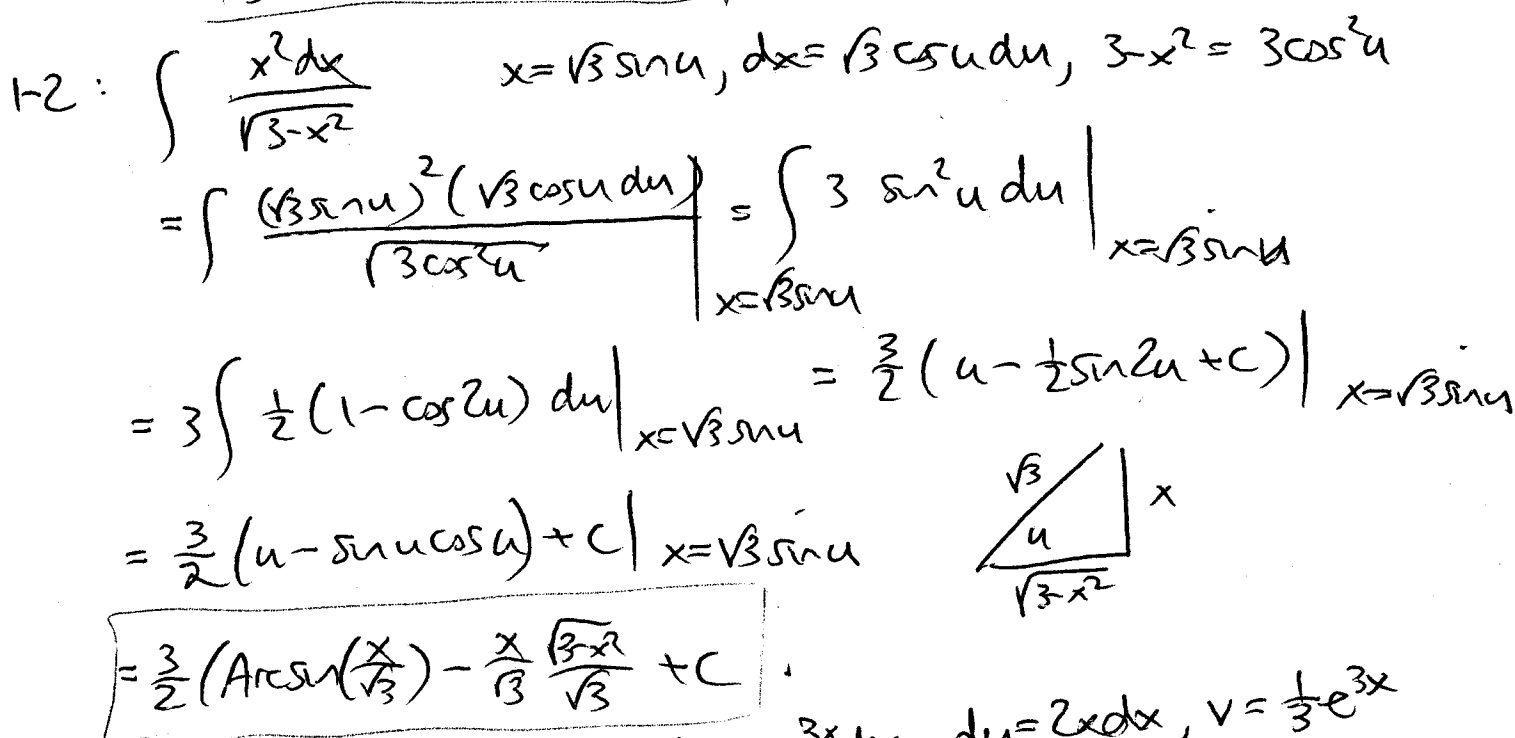 1-2: ∫ x²dx / √(3-x²)   x=√3 sinu, dx=√3 cosudu, 3-x² = 3cos²u
= ∫ (√3sinu)²(√3 cosu du) / √(3cos²u) |x=√3sinu = ∫ 3 sin²u du |x=√3sinu
= 3∫ ½(1-cos2u) du |x=√3sinu = 3/2 (u-½sin2u+C) |x=√3sinu
= 3/2 (u-sinucosu)+C | x=√3sinu   √3 x u √(3-x²)
= 3/2 (Arcsin(x/√3) - x/√3 √(3-x²)/√3 +C .
du=2xdx, v=⅓e^3x